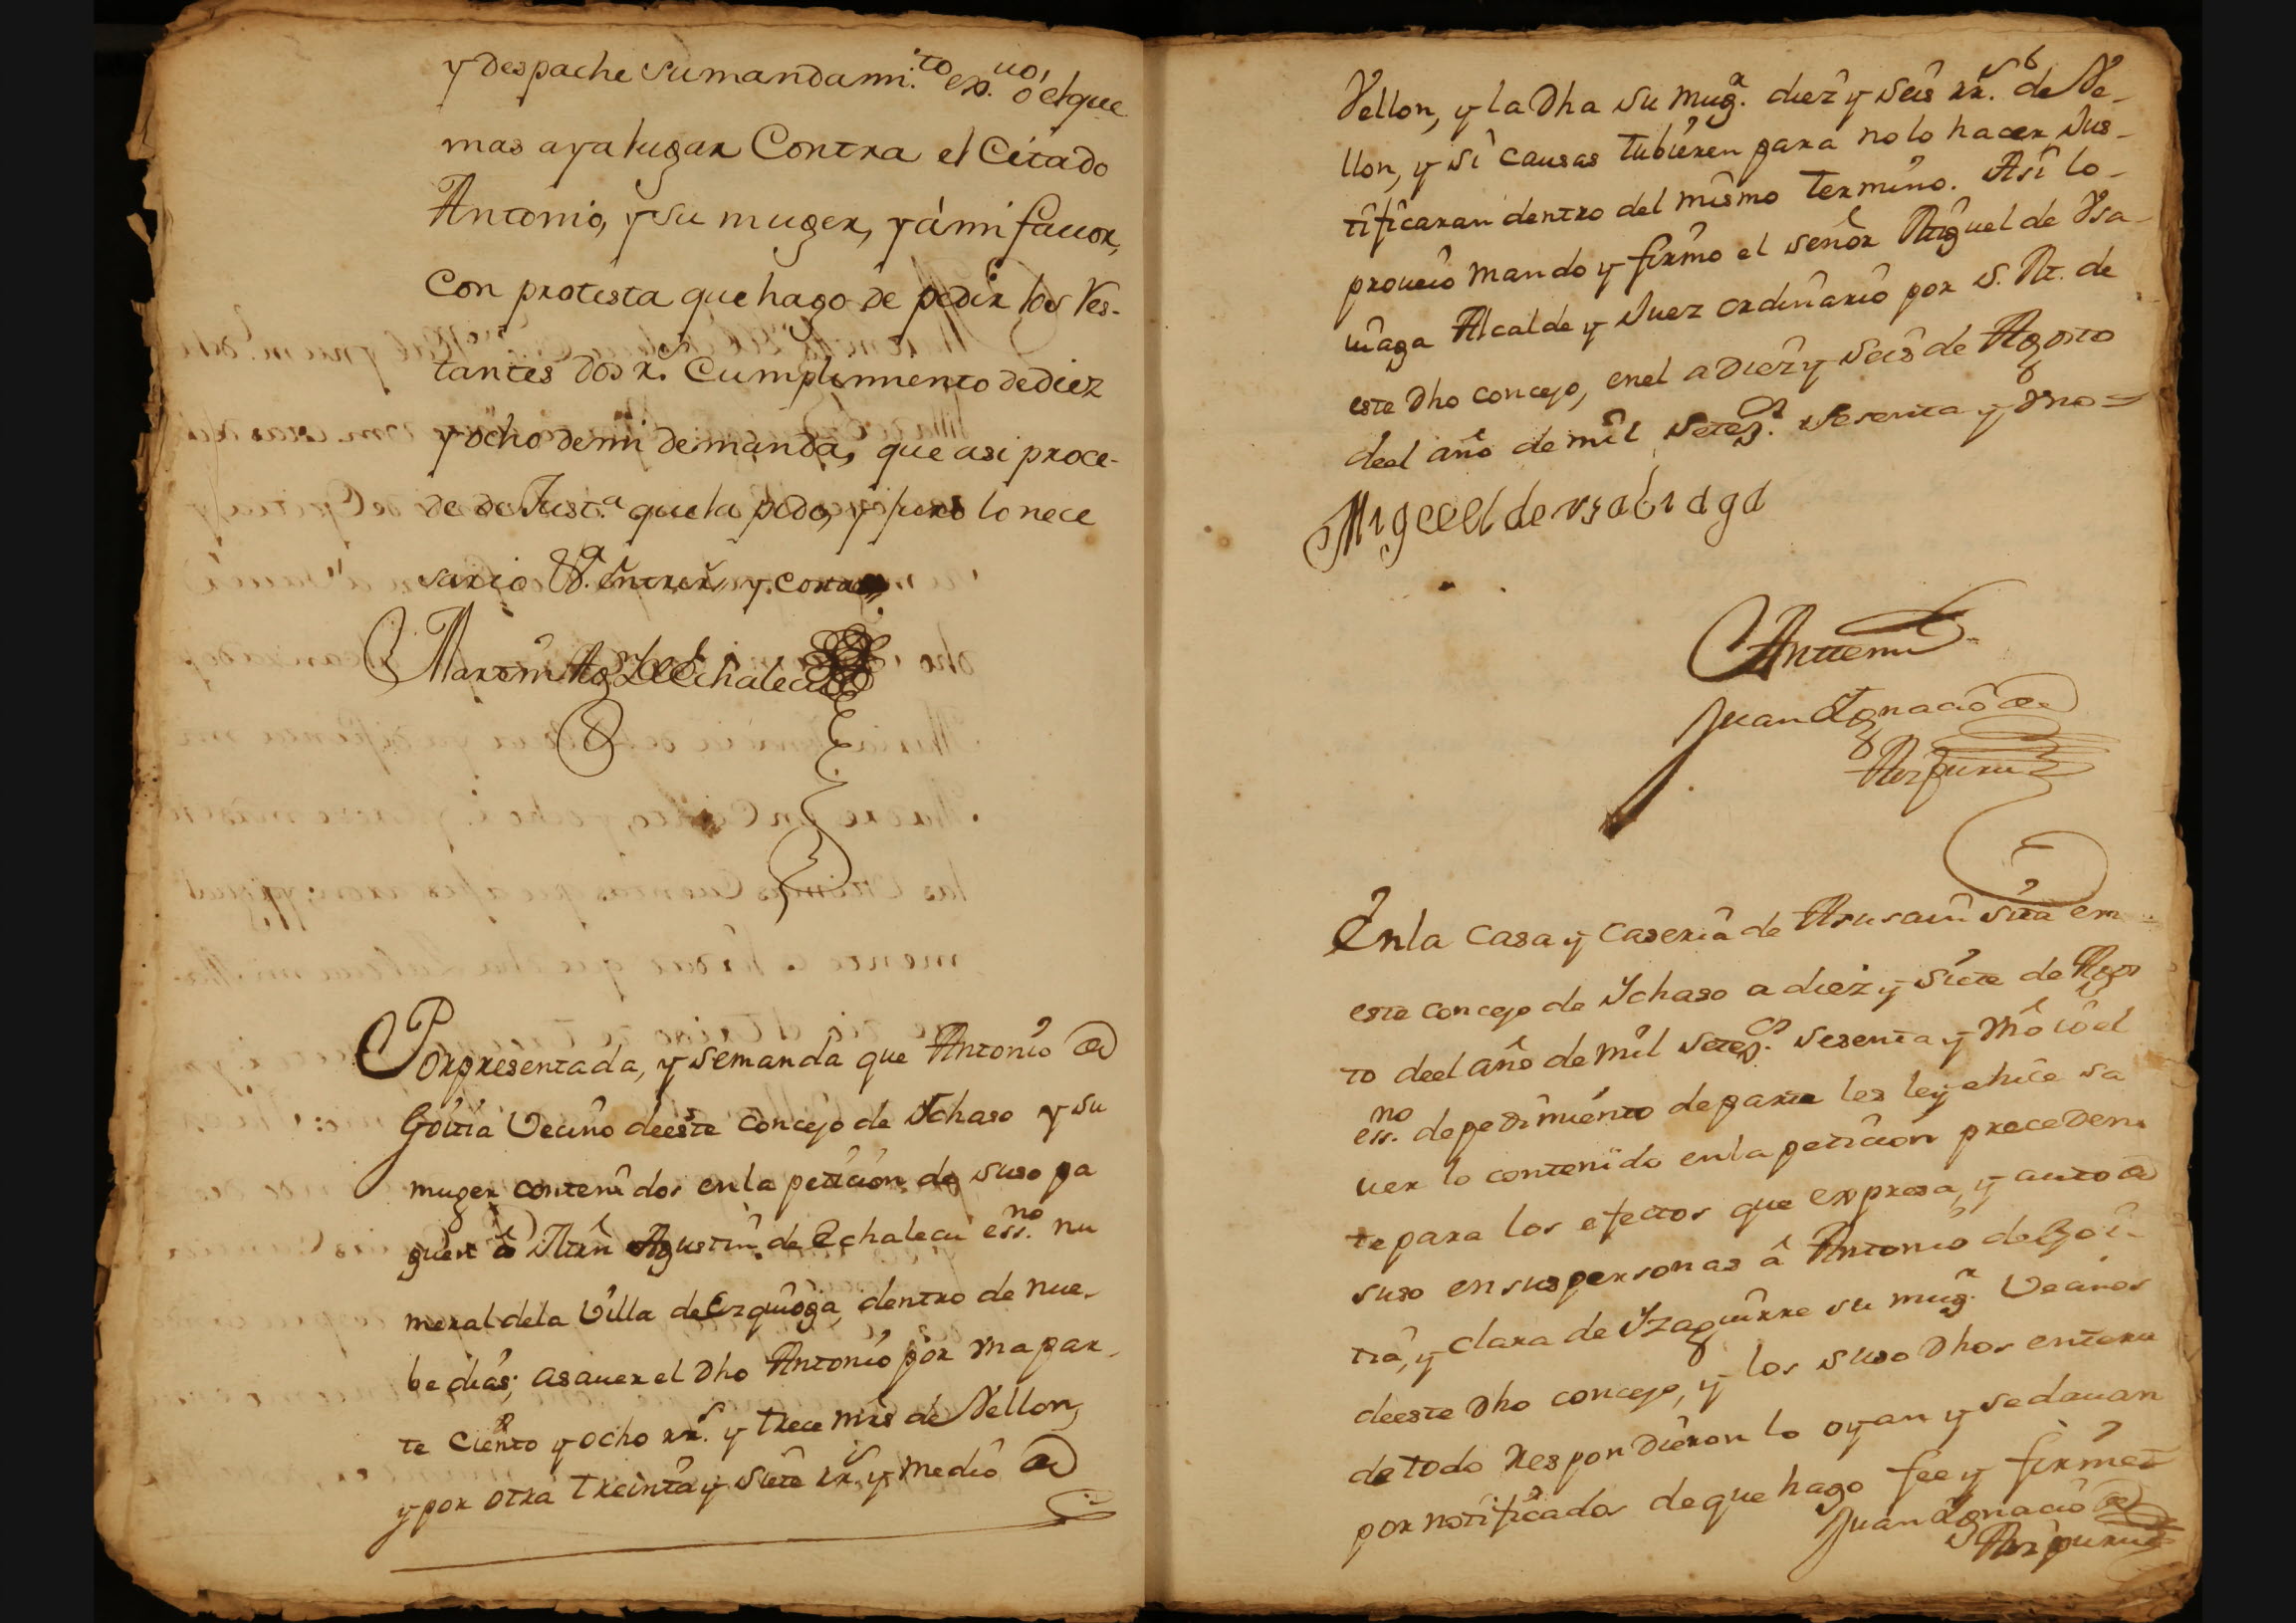 y despache su mandam.to ex.uo, ó el que
mas aya lugar Contra el Citado
Antonio, y su muger, y à mi favor,
Con protesta que hago de pedir los res-
tantes dos r.s Cumplimiento de diez
y ocho de mi demanda, que asi proce-
de de Just.a que la pido, y juro lo nece
sario
Martin Ag.n de Echalecu
Por presentada, y se manda que Antonio de
Goitia Vecino de este Concejo de Ychaso y su
muger contenidos en la peticion de suso pa
guen à Mrn Agustin de Echalecu ess.no nu
meral de la Villa de Ezquioga, dentro de nue-
be dias; a saver el dho Antonio por una par-
te ciento y ocho rr.s y trece mrs de Vellon,
y por otra treinta y siete rr.s y medio de
Vellon, y la dha su mug.r diez y seis rr.s de Ve-
llon, y si causas tubieren para no lo hacer Jus-
tificaran dentro del mismo termino. Asi lo
proveio mando y firmo el señor Miguel de Vsa-
uiaga Alcalde y Juez ordinario por S. M. de
este dho concejo, en el a diez y seis de Agosto
de el año de mil setez.os sesenta y vno =
Miguel de vsabiaga
Antte mi
Juan Ygnacio de
Aizpuru
En la casa y caseria de sita en
este concejo de Ychaso a diez y siete de Agos
to de el año de mil setez.os sesenta y vno io el
ess.no de pedimiento de parte les ley e hice sa
uer lo contenido en la peticion preceden
te para los efectos que expresa, y auto de
suso en sus personas â Antonio de Goi-
tia, y Clara de Yzaguirre su mug.r Vecinos
de este dho concejo, y los suso dhos entera
de todo respondieron lo oyan y se davan
por notificados de que hago fee y firme
Juan Ygnacio de
Aizpuru